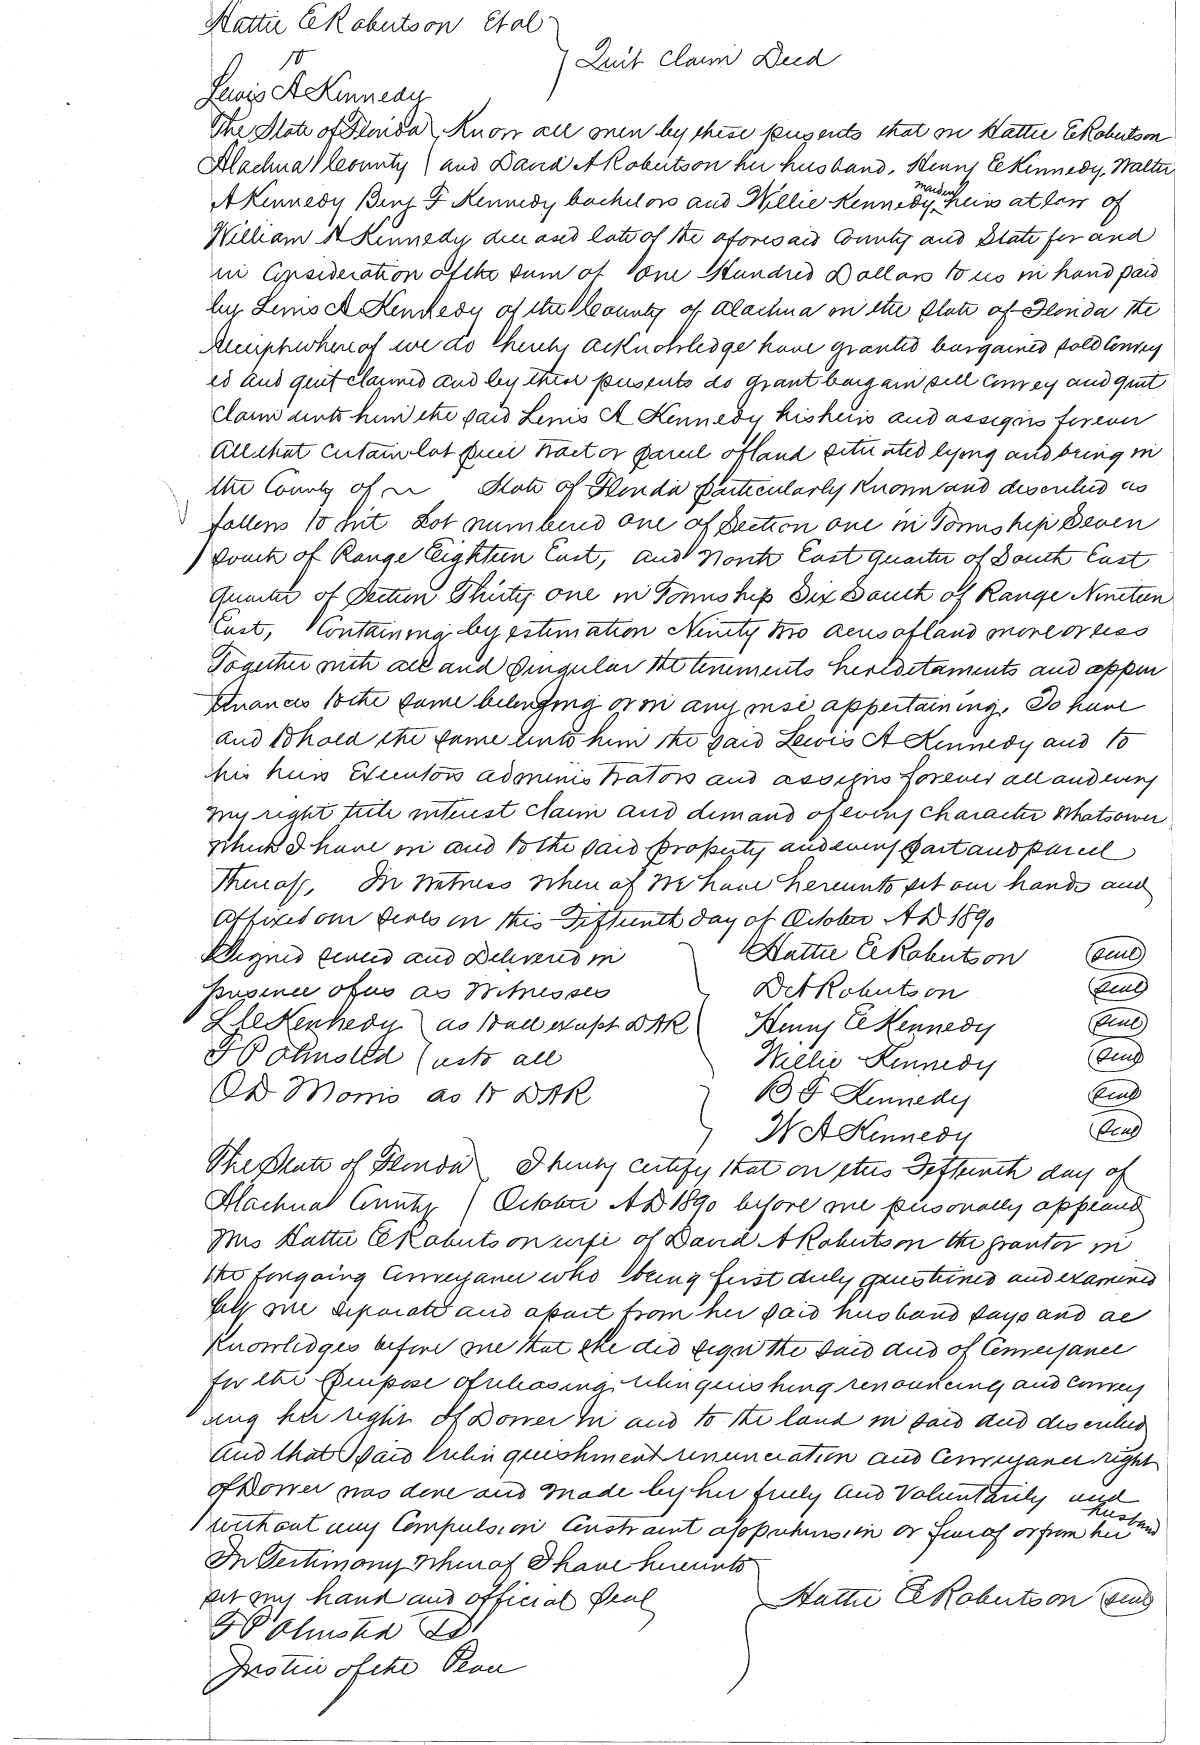 Hattie E Robertson Et al
to
Quit Claim Deed
Lewis A Kennedy
The State of Florida Know all men by these presents that we Hattie E Robertson
Alachua County and David A Robertson her husband, Henry E Kennedy, Walter
A Kennedy Benj F Kennedy bachelors and Willie Kennedy maiden heirs at law of
William A Kennedy deceased late of the aforesaid County and State for and
in Consideration of the sum of One Hundred Dollars to us in hand paid
by Lewis A Kennedy of the County of Alachua in the State of Florida the
receipt whereof we do hereby acknowledge have granted bargained sold Convey
ed and quit claimed and by these presents do grant bargain sell Convey and quit
Claim unto him the said Lewis A Kennedy his heirs and assigns forever
All that certain lot piece tract or parcel of land situated lying and being in
the County of State of Florida particularly Known and described as
follows to wit Lot numbered one of Section one in Township Seven
South of Range Eighteen East, and North East quarter of South East
quarter of Section Thirty one in Township Six South of Range Nineteen
East, Containing by estimation Ninety two acres of land more or less
Together with all and singular the tenements hereditaments and appur
tenances to the same belonging or in any wise appertaining, To have
and to hold the same unto him the said Lewis A Kennedy and to
his heirs Executors administrators and assigns forever all and every
my right title interest Claim and demand of every Character Whatsoever
which I have in and to the said property and every part and parcel
Thereof, In Witness Whereof We have hereunto set our hands and
affixed our seals on this Fifteenth day of October A D 1890
Signed sealed and Delivered in Hattie E Robertson Seal
presence of us as Witnesses D A Robertson Seal
L C Kennedy as to all except DAR Henry E Kennedy Seal
F P Olmsted as to all Willie Kennedy Seal
O D Morris as to DAR B F Kennedy Seal
W A Kennedy Seal
The State of Florida I hereby certify that on this Fifteenth day of
Alachua County October A D 1890 before me personally appeared
Mrs Hattie E Robertson wife of David A Robertson the grantor in
the forgoing Conveyance who being first duly questioned and examined
by me separate and apart from her said husband says and ac
knowledges before me that she did sign the said deed of Conveyance
for the purpose of releasing relinquishing renouncing and convey
ing her right of Dower in and to the land in said deed described
And that said relinquishment renunciation and Conveyance right
of Dower was done and made by her freely and Voluntarily and
without any Compulsion Constraint apprehension or fear of or from her husband
In Testimony Whereof I have hereunto
set my hand and official Seal Hattie E Robertson Seal
F P Olmsted
Justice of the Peace